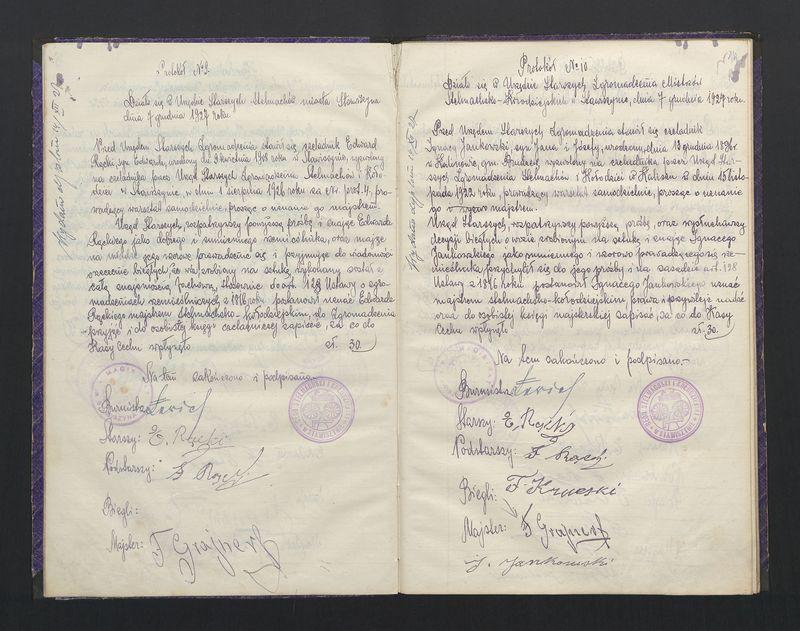 Protokół №9.
Działo się w Urzędzie Starszych Stelmachów miasta Stawiszyna
dnia 7 grudnia 1927 roku.
Przed Urzędem Starszych Zgromadzenia stawił się czeladnik Edward
Rącki, syn Edwarda, urodzony dn. 3 kwietnia 1908 roku w Stawiszynie, wpisany
na czeladnika przez Urząd Starszych Zgromadzenia Stelmachów i Koło-
dziei w Stawiszynie, w dniu 1 sierpnia 1926 roku za № prot. 4, pro-
wadzący warsztat samodzielnie, prosząc o uznanie go majstrem.
Urząd Starszych, rozpatrzywszy powyższą prośbę i znając Edwarda
Rąckiego jako dobrego i sumiennego rzemieślnika, oraz mając
na uwadze jego wzorowe prowadzenie się i przyjmując do wiadomości
orzeczenie biegłych, że wóz zrobiony na sztukę wykonany został z
całą znajomością fachową, stosownie do art. 128 Ustawy o zgro-
madzeniach rzemieślniczych z 1816 roku postanowił uznać Edwarda
Rąckiego majstrem stelmachsko-kołodziejskim, do Zgromadzenia
przyjąć i do osobistej księgi zaciągnięcie zapisać, za co do
Kasy Cechu wpłynęło zł. 30.
Na tem zakończono i podpisano.
Burmistrz
Starszy: E. Rącki
Podstarszy: B Rącki
Biegli:
Majster: F Grajnert
Protokół № 10.
Działo się w Urzędzie Starszych Zgromadzenia Mistrzów
Stelmachsko-Kołodziejskich w Stawiszynie, dnia 7 grudnia 1927 roku.
Przed Urzędem Starszych Zgromadzenia stawił się czeladnik
Ignacy Jankowski, syn Jana i Józefy, urodzony, dnia 13 grudnia 1896 r.
w Kalinowie, gm. Brudzew, wyzwolony na czeladnika przez Urząd Star-
szych Zgromadzenia Stelmachów i Kołodziei w Kaliszu w dniu 15 listo-
pada 1922 roku, prowadzący warsztat samodzielnie, prosząc o uznanie
go majstrem.
Urząd Starszych, rozpatrzywszy powyższą prośbę, oraz wysłuchawszy
decyzji biegłych o wozie zrobionym na sztukę i znając Ignacego
Jankowskiego jako sumiennego i wzorowo prowadzącego się rze-
mieślnika, przychylił się do jego prośby i na zasadzie art. 128
Ustawy z 1816 roku postanowił Ignacego Jankowskiego uznać
majstrem stelmachsko-kołodziejskim, prawa i przywileje nadać
oraz do osobistej księgi majsterskiej zapisać, za co do Kasy
Cechu wpłynęło zł. 30.
Na tem zakończono i podpisano.
Burmistrz
Starszy: E. Rącki
Podstarszy: F Rącki
Biegli: F. Krucski
Majster: F Grajnert
J. Jankowski